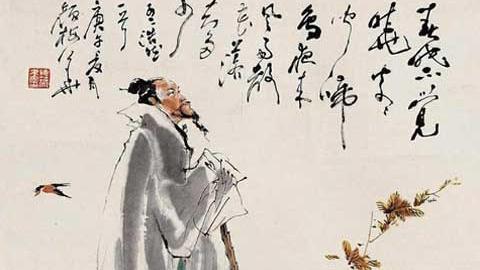 春眠不觉
晓处处
闻啼
鸟夜来
风雨声
花落
知多
少孟浩然
庚午夏月
颜梅华